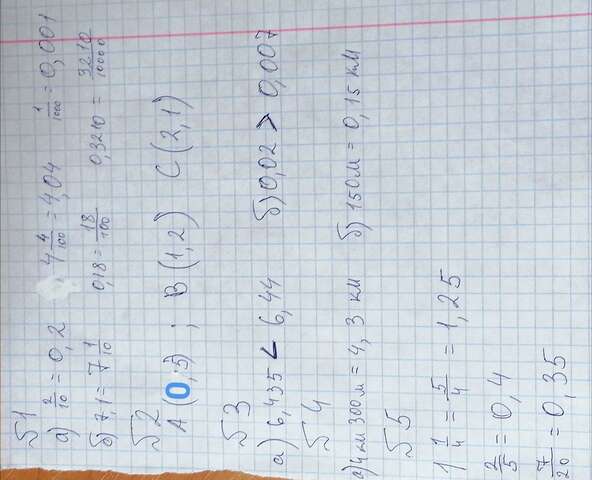 №1
а) 2/10 = 0,2 4 4/100 = 4,04 1/1000 = 0,001
б) 7,1 = 7 1/10 0,18 = 18/100 0,3210 = 3210/10000
№2
А (0,5) ; В (1,2) С (2,1)
№3
а) 6,435 < 6,44 б) 0,02 > 0,007
№4
а) 4 км 300 м = 4,3 км б) 150 м = 0,15 км
№5
1 1/4 = 5/4 = 1,25
2/5 = 0,4
7/20 = 0,35